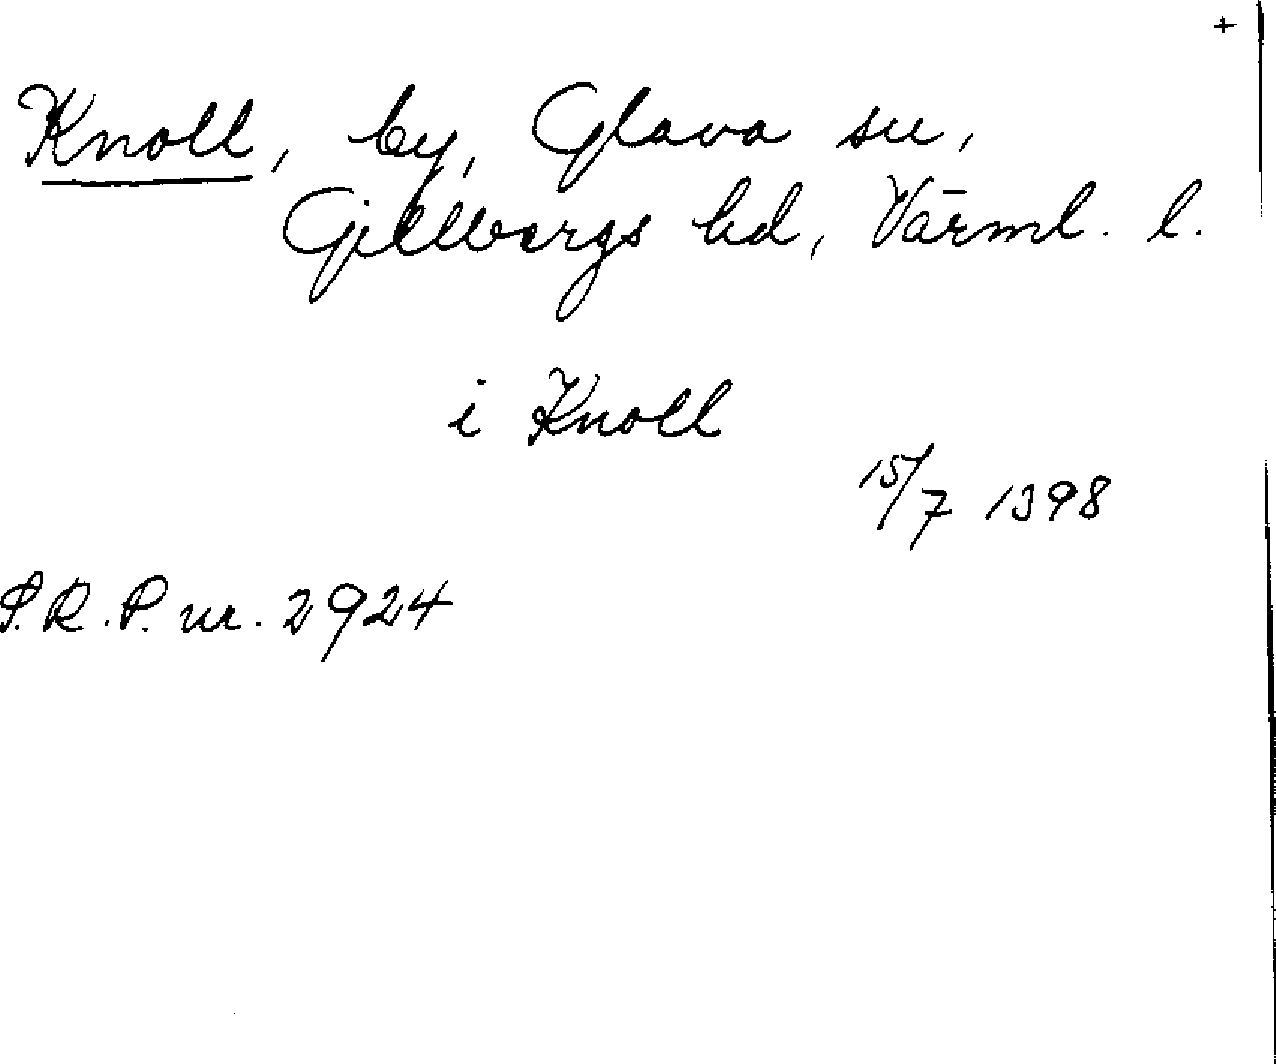 +
Knoll, by, Glava sn,
Gillbergs hd, Värml. l.
i Knoll
15/7 1398
S.R.P. nr. 2924